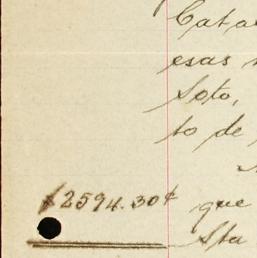 Cata
esas
Soto,
to de
$2594.30¢
que
Sta